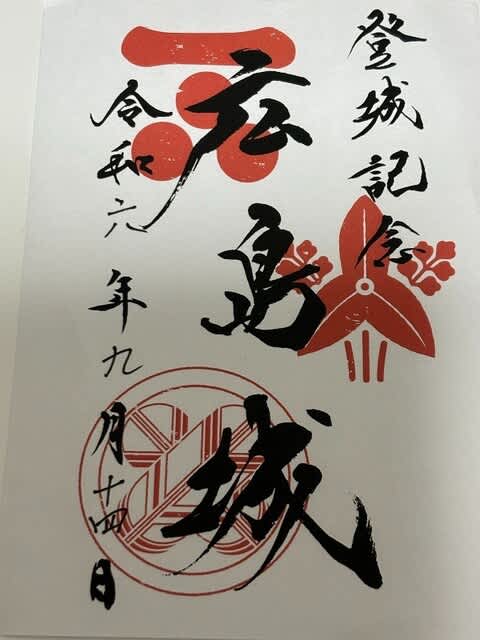 登城記念
広島城
令和六年九月十四日